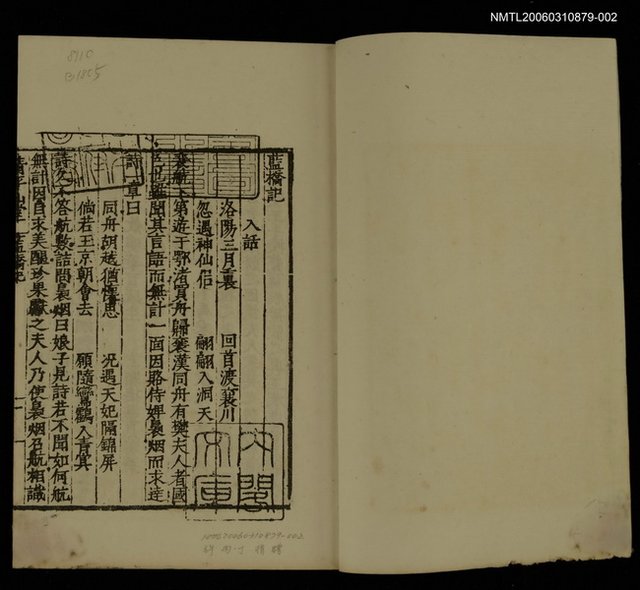 NMTL20060310879-002
8110
B1805
藍橋記
入話
洛陽三月裏 回首渡襄川
忽遇神仙侣 翩翩入洞天
裴航下第遊于鄂渚買舟歸襄漢同舟有樊夫人者國
色也雖聞其言語而無計一面因賂侍婢裊烟而求達
詩一章曰
同舟胡越猶懷思 况遇天妃隔錦屏
倘若玉京朝會去 願隨鸞鶴入青冥
詩久不答航數詰問裊烟曰娘子見詩若不聞如何航
無計因自求美醖珍果獻之夫人乃使裊烟召航相識
内閣
文庫
NMTL20060310879-002